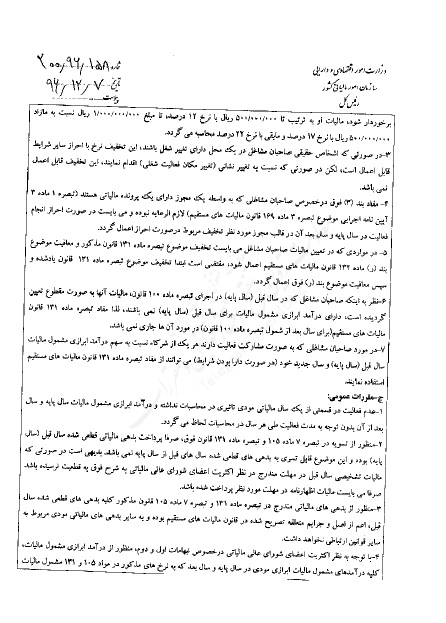 وزارت امور اقتصادی و دارایی
سازمان امور مالیاتی کشور
رئیس کل
شماره ۲۰۰/۹۶/۱۵۸
تاریخ ۹۶/۱۲/۰۷
پیوست
برخوردار شود، مالیات او به ترتیب تا ۵۰۰/۰۰۰/۰۰۰ ریال با نرخ ۱۲ درصد، تا مبلغ ۱/۰۰۰/۰۰۰/۰۰۰ ریال نسبت به مازاد
۵۰۰/۰۰۰/۰۰۰ ریال با نرخ ۱۷ درصد و مابقی با نرخ ۲۲ درصد محاسبه می گردد.
۳-در صورتی که اشخاص حقیقی صاحبان مشاغلی در یک محل دارای تغییر شغل باشند، این تخفیف نرخ با احراز سایر شرایط
قابل اعمال است، لکن در صورتی که نسبت به تغییر نشانی (تغییر مکان فعالیت شغلی) اقدام نمایند، این تخفیف قابل اعمال
نمی باشد.
۴- مفاد بند (۳) فوق درخصوص صاحبان مشاغلی که به واسطه یک مجوز دارای یک پرونده مالیاتی هستند (تبصره ۱ ماده ۳
آیین نامه اجرایی موضوع تبصره ۳ ماده ۱۶۹ قانون مالیات های مستقیم) لازم الرعایه نبوده و می بایست در صورت احراز انجام
فعالیت در سال پایه و سال بعد آن در قالب مجوز مورد نظر تخفیف مربوط درصورت احراز اعمال گردد.
۵- در مواردی که در تعیین مالیات صاحبان مشاغل می بایست تخفیف موضوع تبصره ماده ۱۳۱ قانون مذکور و معافیت موضوع
بند (ر) ماده ۱۳۲ قانون مالیات های مستقیم اعمال شود، مقتضی است ابتدا تخفیف موضوع تبصره ماده ۱۳۱ قانون یادشده و
سپس معافیت موضوع بند (ر) فوق اعمال گردد.
۶-نظر به اینکه صاحبان مشاغلی که در سال قبل (سال پایه) در اجرای تبصره ماده ۱۰۰ قانون، مالیات آنها به صورت مقطوع تعیین
گردیده است، دارای درآمد ابرازی مشمول مالیات برای سال قبل (سال پایه) نمی باشند، لذا مفاد تبصره ماده ۱۳۱ قانون
مالیات های مستقیم(برای سال بعد از شمول تبصره ماده ۱۰۰ قانون) در مورد آن ها جاری نمی باشد.
۷-در مورد صاحبان مشاغلی که به صورت مشارکت فعالیت دارند هر یک از شرکاء نسبت به سهم درآمد ابرازی مشمول مالیات
سال قبل (سال پایه) و سال جدید خود (در صورت دارا بودن شرایط) می توانند از مفاد تبصره ماده ۱۳۱ قانون مالیات های مستقیم
استفاده نمایند.
ج-مقررات عمومی:
۱-عدم فعالیت در قسمتی از یک سال مالیاتی مودی تاثیری در محاسبات نداشته و درآمد ابرازی مشمول مالیات سال پایه و سال
بعد از آن بدون توجه به مدت فعالیت طی هر سال در محاسبات لحاظ می گردد.
۲-منظور از تسویه در تبصره ۷ ماده ۱۰۵ و تبصره ماده ۱۳۱ قانون فوق، صرفا پرداخت بدهی مالیاتی قطعی شده سال قبل (سال
پایه) بوده و این موضوع قابل تسری به بدهی های قطعی شده سال های قبل از سال پایه نمی باشد. بدیهی است در صورتی که
مالیات تشخیصی سال قبل در مهلت مندرج در نظر اکثریت اعضای شورای عالی مالیاتی به شرح فوق به قطعیت نرسیده باشد
صرفا می بایست مالیات اظهارنامه در مهلت مورد نظر پرداخت شده باشد.
۳-منظور از بدهی های مالیاتی مندرج در تبصره ماده ۱۳۱ و تبصره ۷ ماده ۱۰۵ قانون مذکور کلیه بدهی های قطعی شده سال
قبل، اعم از اصل و جرایم متعلقه تصریح شده در قانون مالیات های مستقیم بوده و به سایر بدهی های مالیاتی مودی مربوط به
سایر قوانین ارتباطی نخواهد داشت.
۴-با توجه به نظر اکثریت اعضای شورای عالی مالیاتی درخصوص ابهامات اول و دوم، منظور از درآمد ابرازی مشمول مالیات،
کلیه درآمدهای مشمول مالیات ابرازی مودی در سال پایه و سال بعد که به نرخ های مذکور در مواد ۱۰۵ و ۱۳۱ مشمول مالیات